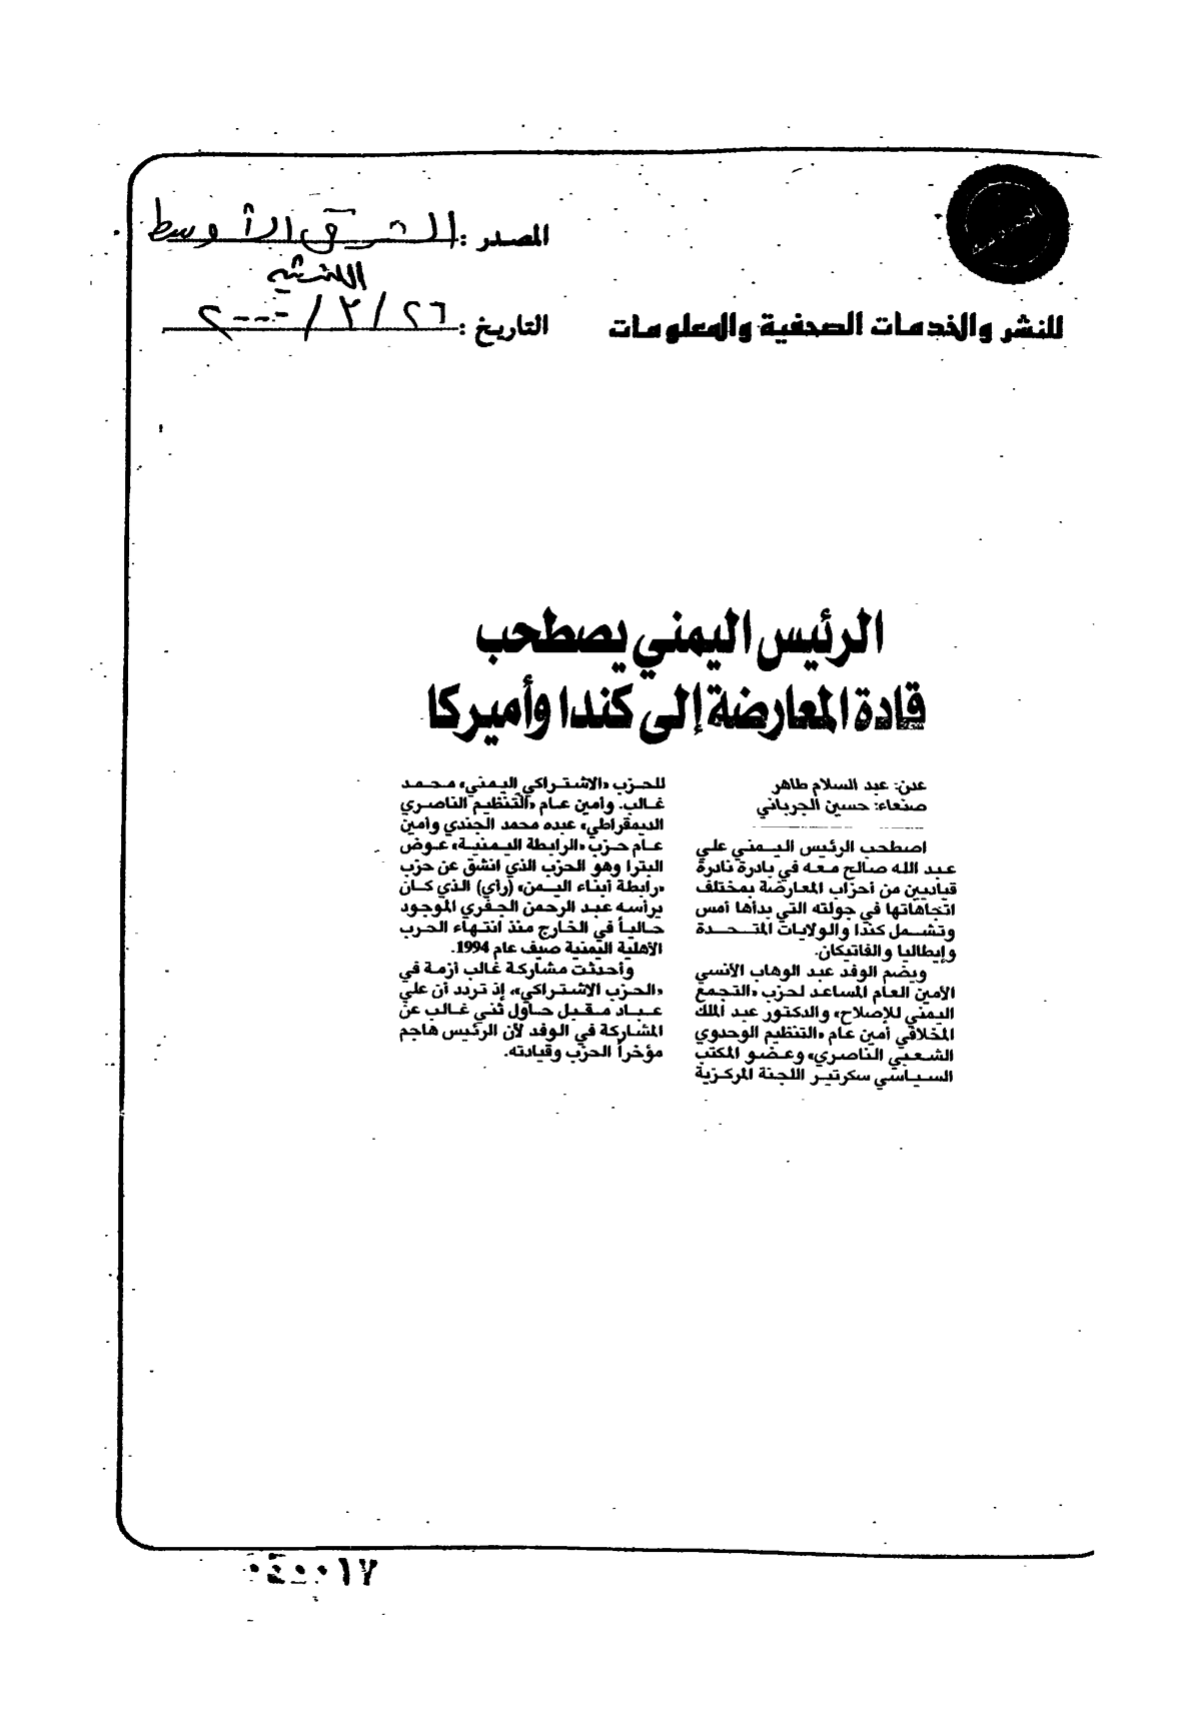 المصدر : الشرق الأوسط
اللندنية
للنشر والخدمات الصحفية والمعلومات
التاريخ : ٢٦/٣/٢٠٠٠
الرئيس اليمني يصطحب
قادة المعارضة إلى كندا وأميركا
عدن: عبد السلام طاهر
صنعاء: حسين الجرباني
اصطحب الرئيس اليمني علي
عبد الله صالح معه في بادرة نادرة
قياديين من أحزاب المعارضة بمختلف
اتجاهاتها في جولته التي بدأها أمس
وتشمل كندا والولايات المتحدة
وإيطاليا والفاتيكان.
ويضم الوفد عبد الوهاب الأنسي
الأمين العام المساعد لحزب «التجمع
اليمني للإصلاح» والدكتور عبد الملك
المخلافي أمين عام «التنظيم الوحدوي
الشعبي الناصري» وعضو المكتب
السياسي سكرتير اللجنة المركزية
للحزب «الاشتراكي اليمني» محمد
غالب. وأمين عام «التنظيم الناصري
الديمقراطي» عبده محمد الجندي وأمين
عام حزب «الرابطة اليمنية» عوض
البترا وهو الحزب الذي انشق عن حزب
«رابطة أبناء اليمن» (رأي) الذي كان
يرأسه عبد الرحمن الجفري الموجود
حالياً في الخارج منذ انتهاء الحرب
الأهلية اليمنية صيف عام 1994.
وأحدثت مشاركة غالب أزمة في
«الحزب الاشتراكي»، إذ تردد أن علي
عباد مقبل حاول ثني غالب عن
المشاركة في الوفد لأن الرئيس هاجم
مؤخراً الحزب وقيادته.